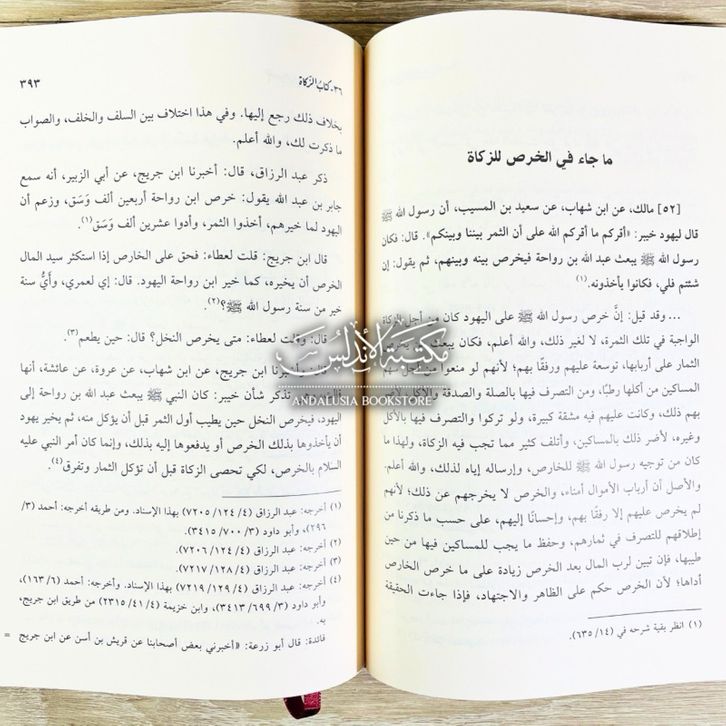 ما جاء في الخرص للزكاة
[٥٢] مالك، عن ابن شهاب، عن سعيد بن المسيب، أن رسول الله ﷺ
قال ليهود خيبر: «أقركم ما أقركم الله على أن الثمر بيننا وبينكم». قال: فكان
رسول الله ﷺ يبعث عبد الله بن رواحة فيخرص بينه وبينهم، ثم يقول: إن
شئتم فلي، فكانوا يأخذونه.(١)
... وقد قيل: إنَّ خرص رسول الله ﷺ على اليهود كان من أجل الزكاة
الواجبة في تلك الثمرة، لا لغير ذلك، والله أعلم، فكان يبعث من يخرص
الثمار على أربابها، توسعة عليهم ورفقًا بهم؛ لأنهم لو منعوا من أجل
المساكين من أكلها رطبًا، ومن التصرف فيها بالصلة والصدقة والأكل،
بهم ذلك، وكانت عليهم فيه مشقة كبيرة، ولو تركوا والتصرف فيها بالأكل
وغيره، لأضر ذلك بالمساكين، وأتلف كثير مما تجب فيه الزكاة، ولهذا ما
كان من توجيه رسول الله ﷺ للخارص، وإرساله إياه لذلك، والله أعلم.
والأصل أن أرباب الأموال أمناء، والخرص لا يخرجهم عن ذلك؛ لأنهم
لم يخرص عليهم إلا رفقًا بهم، وإحسانًا إليهم، على حسب ما ذكرنا من
إطلاقهم للتصرف في ثمارهم، وحفظ ما يجب للمساكين فيها من حين
طيبها، فإن تبين لرب المال بعد الخرص زيادة على ما خرص الخارص
أداها؛ لأن الخرص حكم على الظاهر والاجتهاد، فإذا جاءت الحقيقة
(١) انظر بقية شرحه في (١٤/ ٦٣٥).
٣٦- كتاب الزكاة ٣٩٣
بخلاف ذلك رجع إليها. وفي هذا اختلاف بين السلف والخلف، والصواب
ما ذكرت لك، والله أعلم.
ذكر عبد الرزاق، قال: أخبرنا ابن جريج، عن أبي الزبير، أنه سمع
جابر بن عبد الله يقول: خرص ابن رواحة أربعين ألف وَسَق، وزعم أن
اليهود لما خيرهم، أخذوا الثمر، وأدوا عشرين ألف وَسَق(١).
قال ابن جريج: قلت لعطاء: فحق على الخارص إذا استكثر سيد المال
الخرص أن يخيره، كما خير ابن رواحة اليهود. قال: إي لعمري، وأيُّ سنة
خير من سنة رسول الله ﷺ؟(٢).
قال: وقلت لعطاء: متى يخرص النخل؟ قال: حين يطعم(٣).
قال: وأخبرنا ابن جريج، عن ابن شهاب، عن عروة، عن عائشة، أنها
قالت وهي تذكر شأن خيبر: كان النبي ﷺ يبعث عبد الله بن رواحة إلى
اليهود، فيخرص النخل حين يطيب أول الثمر قبل أن يؤكل منه، ثم يخير يهود
أن يأخذوها بذلك الخرص أو يدفعوها إليه بذلك، وإنما كان أمر النبي عليه
السلام بالخرص، لكي تحصى الزكاة قبل أن تؤكل الثمار وتفرق(٤).
(١) أخرجه: عبد الرزاق (٤/ ١٢٤/ ٧٢٠٥) بهذا الإسناد. ومن طريقه أخرجه: أحمد (٣/
٢٩٦)، وأبو داود (٣/ ٧٠٠/ ٣٤١٥).
(٢) أخرجه: عبد الرزاق (٤/ ١٢٤/ ٧٢٠٦).
(٣) أخرجه: عبد الرزاق (٤/ ١٢٨/ ٧٢١٧).
(٤) أخرجه: عبد الرزاق (٤/ ١٢٩/ ٧٢١٩) بهذا الإسناد. وأخرجه: أحمد (٦/ ١٦٣)،
وأبو داود (٣/ ٦٩٩/ ٣٤١٣)، وابن خزيمة (٤/ ٤١/ ٢٣١٥) من طريق ابن جريج،
به.
فائدة: قال أبو زرعة: «أخبرني بعض أصحابنا عن قريش بن أنس عن ابن جريج =
مكتبة الأندلس
ANDALUSIA BOOKSTORE